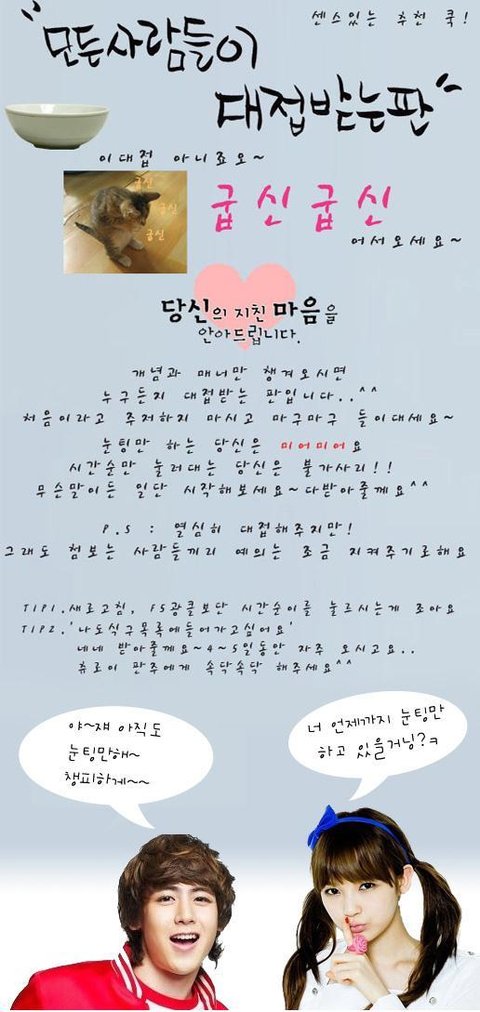 센스있는 추천 쿡!
"모든사람들이
대접받는판"
이대접 아니죠오~
굽신
굽신
굽신
굽신굽신
어서오세요~
당신의 지친 마음을
안아드립니다.
개념과 매너만 챙겨오시면
누구든지 대접받는 판입니다..^^
처음이라고 주저하지 마시고 마구마구 들이대세요~
눈팅만 하는 당신은 미어미어요
시간순만 눌러대는 당신은 불가사리!!
무슨말이든 일단 시작해보세요~다받아줄께요^^
P.S : 열심히 대접해주지만!
그래도 첨보는 사람들끼리 예의는 조금 지켜주기로해요
TIP1.새로고침, F5광클보단 시간순이를 눌르시는게 조아요
TIP2.'나도식구목록에들어가고싶어요'
네네 받아줄께요~4~5일동안 자주 오시고요..
휴로이 판주에게 속닥속닥 해주세요^^
야~쟤 아직도
눈팅만해~
챙피하게~~
너 언제까지 눈팅만
하고 있을거닝?ㅋ